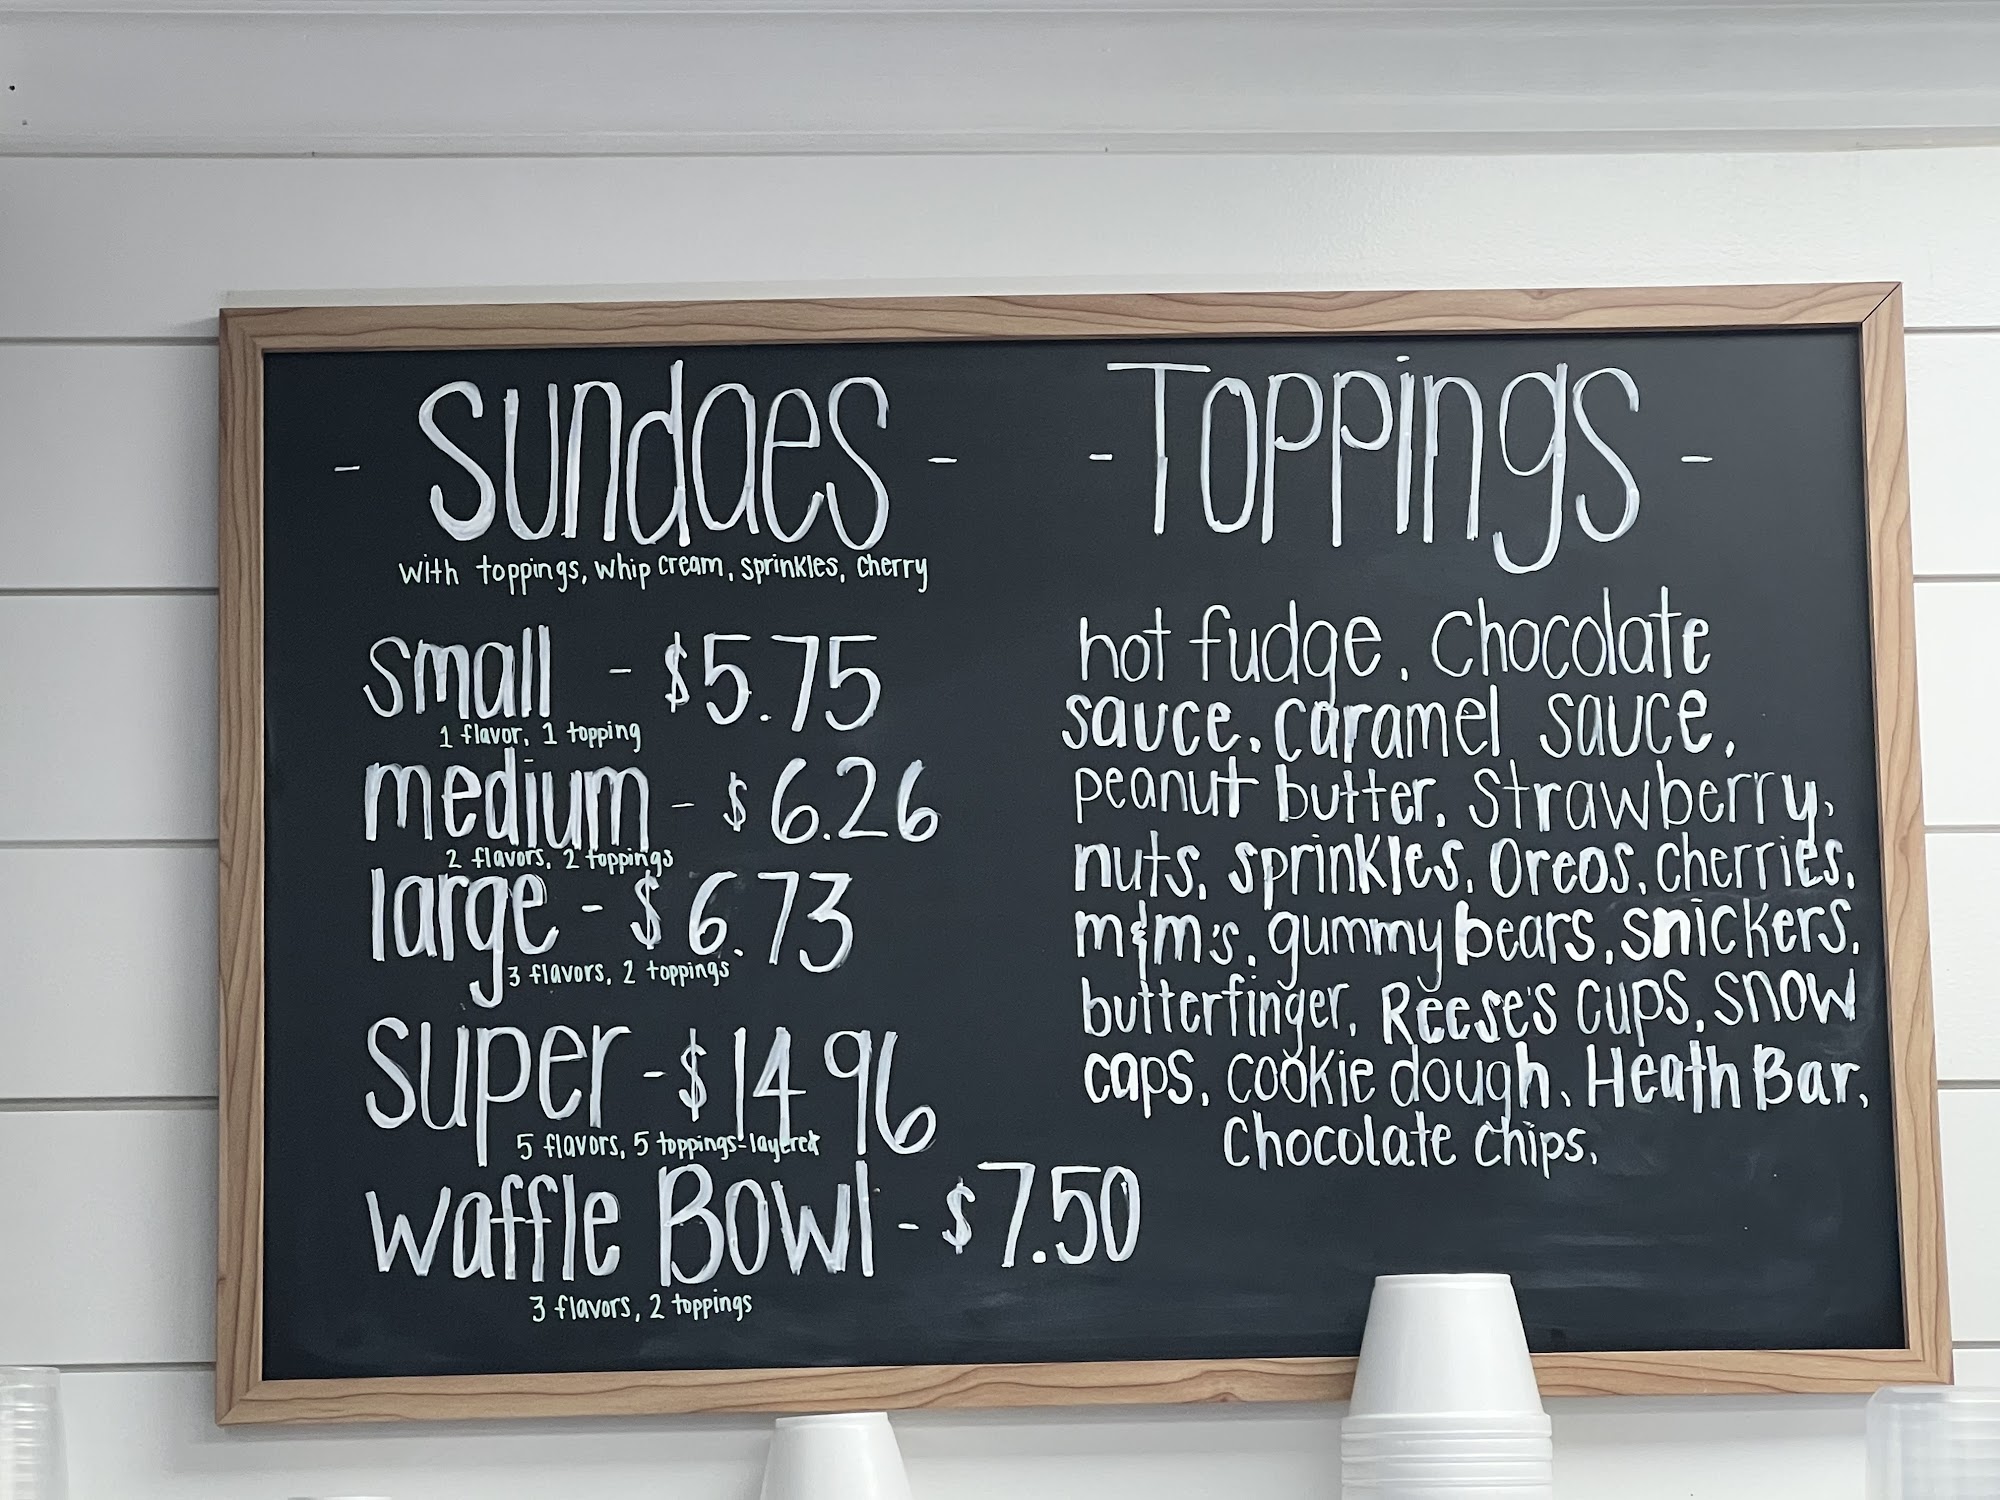 - Sundaes -
with toppings, whip cream, sprinkles, cherry
small - $5.75
1 flavor, 1 topping
medium - $6.26
2 flavors, 2 toppings
large - $6.73
3 flavors, 2 toppings
super - $14.96
5 flavors, 5 toppings-layered
waffle Bowl - $7.50
3 flavors, 2 toppings
- Toppings -
hot fudge, Chocolate
sauce, caramel sauce,
peanut butter, strawberry,
nuts, sprinkles, Oreos, cherries,
m&m's, gummy bears, snickers,
butterfinger, Reese's cups, snow
caps, cookie dough, Heath Bar,
Chocolate chips,